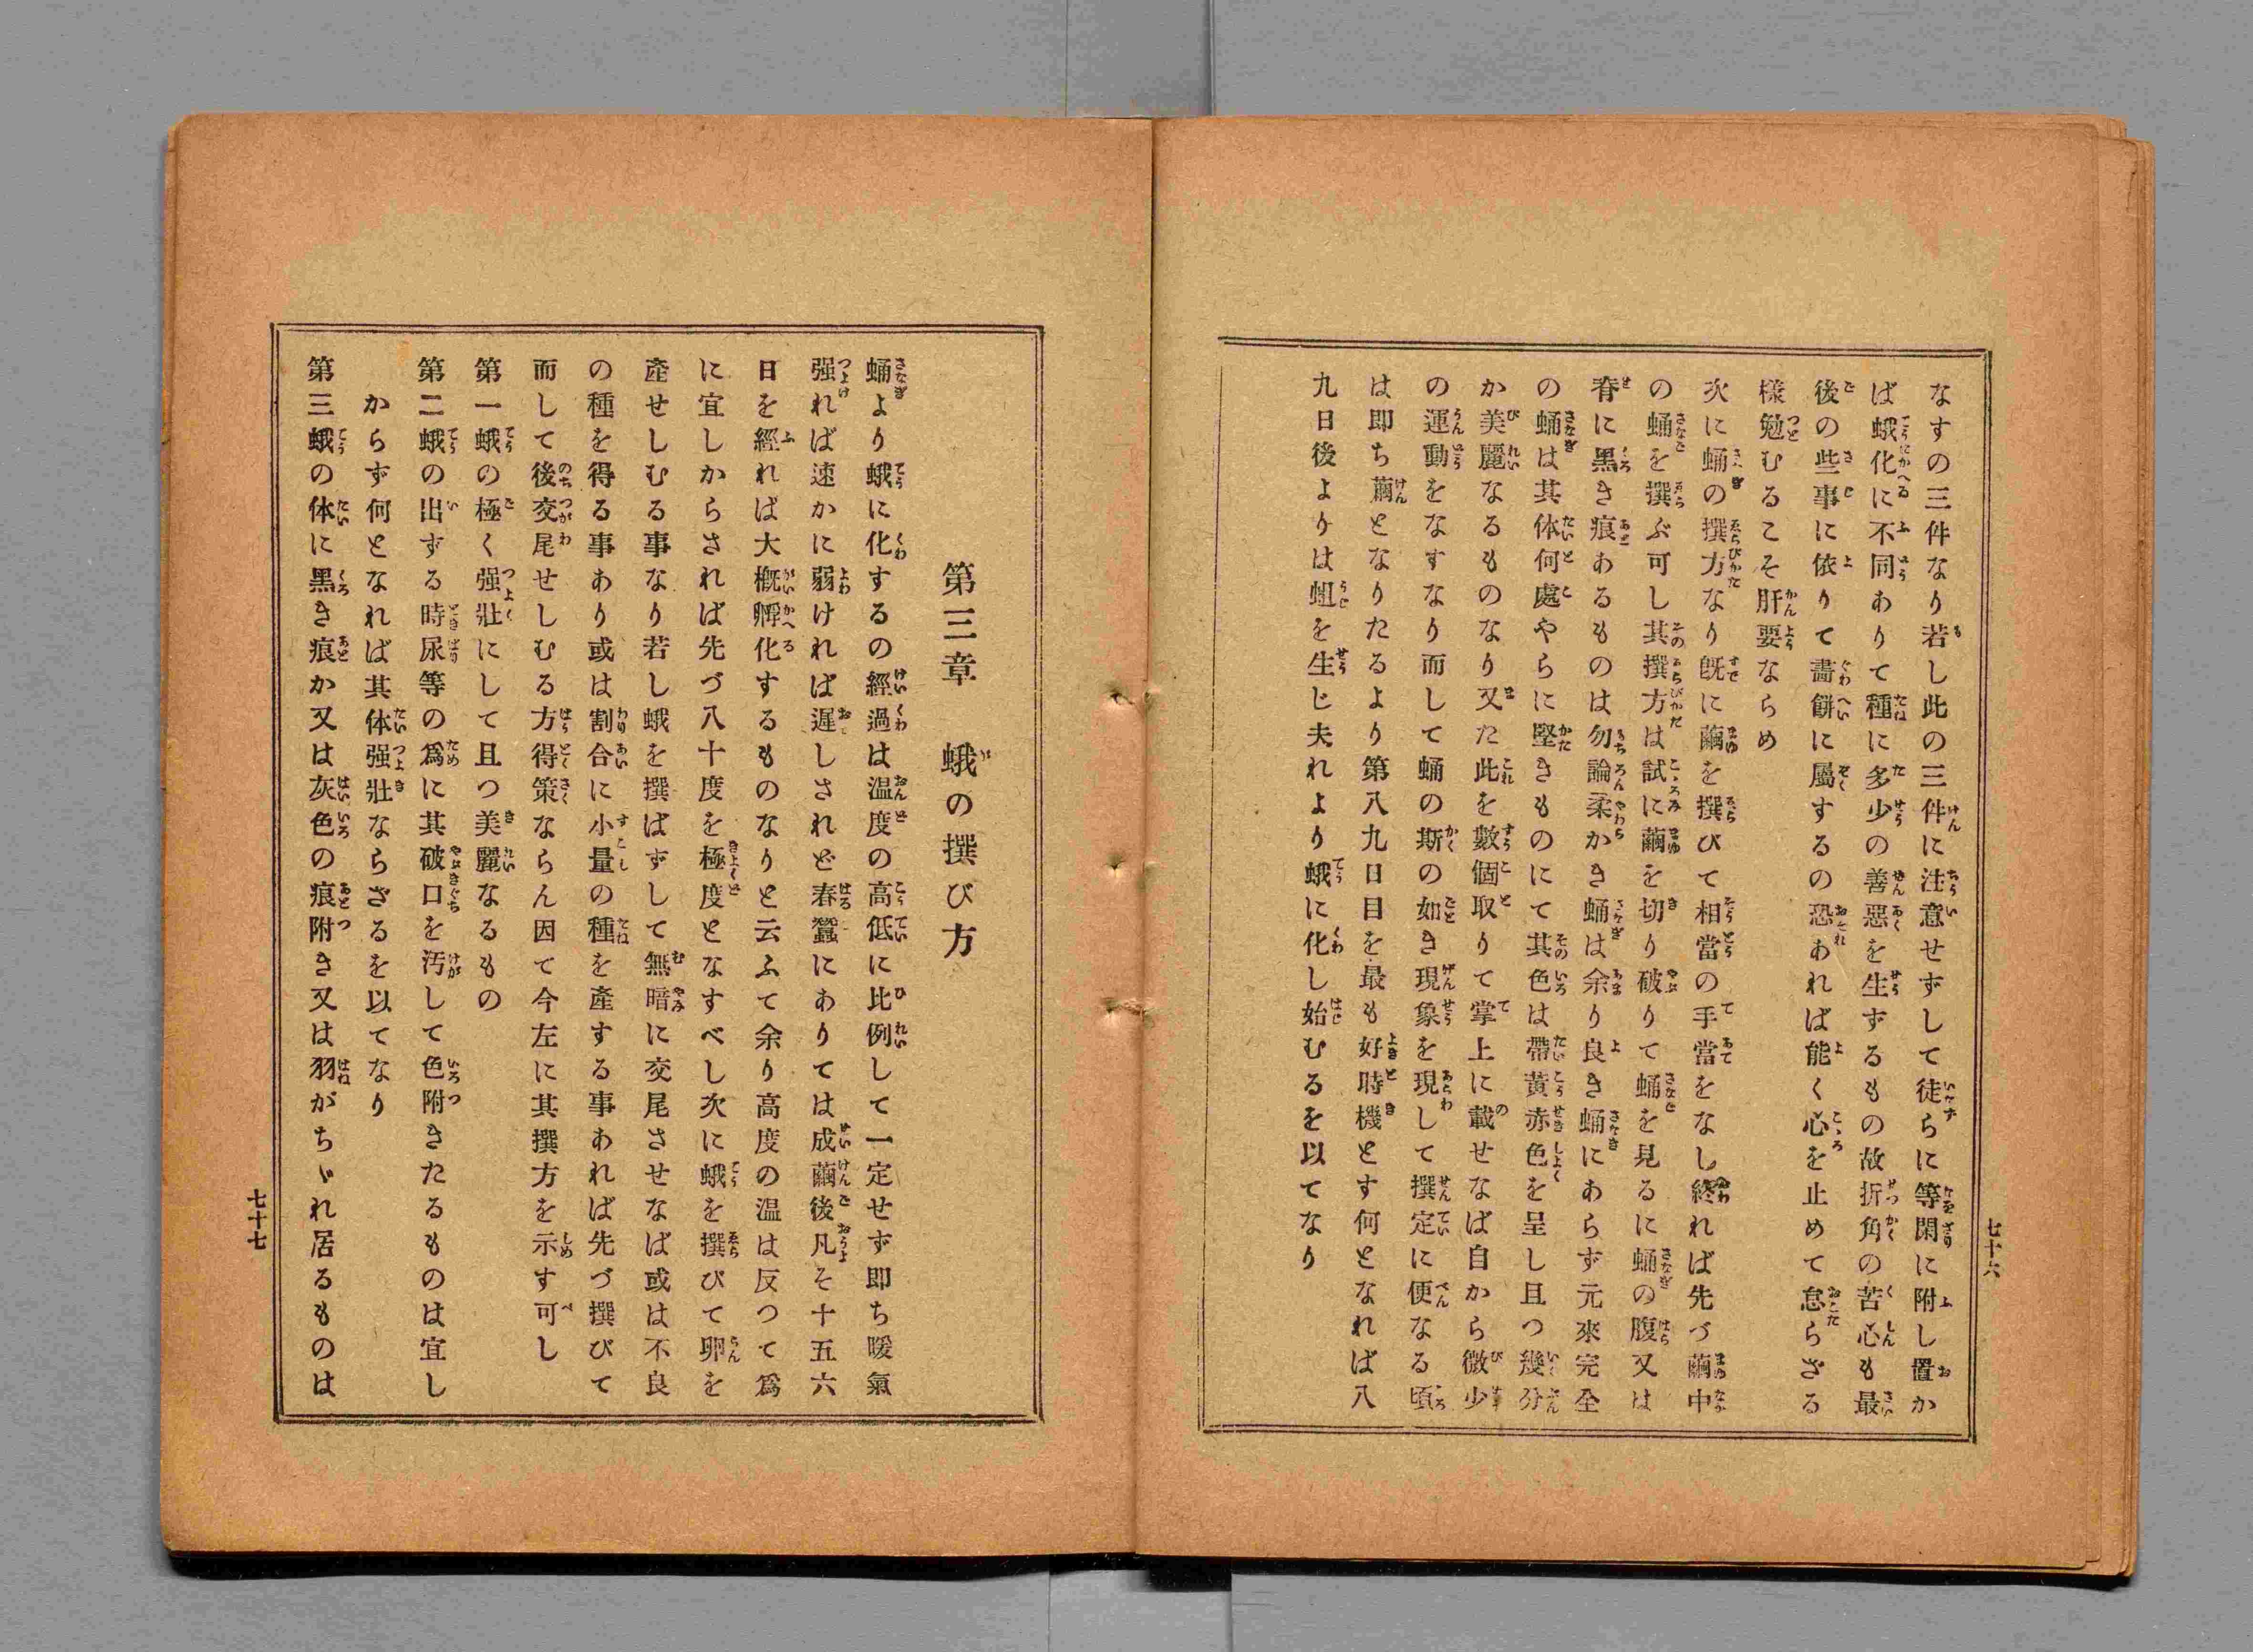 なすの三件なり若し此の三件に注意せずして徒らに等閑に附し置か
ば蛾化に不同ありて種に多少の善惡を生ずるもの故折角の苦心も最
後の些事に依りて畵餅に屬するの恐あれば能く心を止めて怠らざる
樣勉むるこそ肝要ならめ
次に蛹の撰方なり旣に繭を撰びて相當の手當をなし終れば先づ繭中
の蛹を撰ぶ可し其撰方は試に繭を切り破りて蛹を見るに蛹の腹又は
脊に黑き痕あるものは勿論柔かき蛹は余り良き蛹にあらず元來完全
の蛹は其体何處やらに堅きものにて其色は帶黄赤色を呈し且つ幾分
か美麗なるものなり又た此を數個取りて掌上に載せなば自から微少
の運動をなすなり而して蛹の斯の如き現象を現して撰定に便なる頃
は即ち繭となりたるより第八九日目を最も好時機とす何となれば八
九日後よりは蛆を生じ夫れより蛾に化し始むるを以てなり
七十六
第三章　蛾の撰び方
蛹より蛾に化するの經過は温度の高低に比例して一定せず即ち暖氣
强れば速かに弱ければ遲しされど春蠶にありては成繭後凡そ十五六
日を經れば大概孵化するものなりと云ふて余り高度の温は反つて爲
に宜しからされば先づ八十度を極度となすべし次に蛾を撰びて卵を
產せしむる事なり若し蛾を撰ばずして無暗に交尾させなば或は不良
の種を得る事あり或は割合に小量の種を產する事あれば先づ撰びて
而して後交尾せしむる方得策ならん因て今左に其撰方を示す可し
第一蛾の極く强壯にして且つ美麗なるもの
第二蛾の出ずる時尿等の爲に其破口を汚して色附きたるものは宜し
からず何となれば其体强壯ならざるを以てなり
第三蛾の体に黑き痕か又は灰色の痕附き又は羽がちゞれ居るものは
七十七